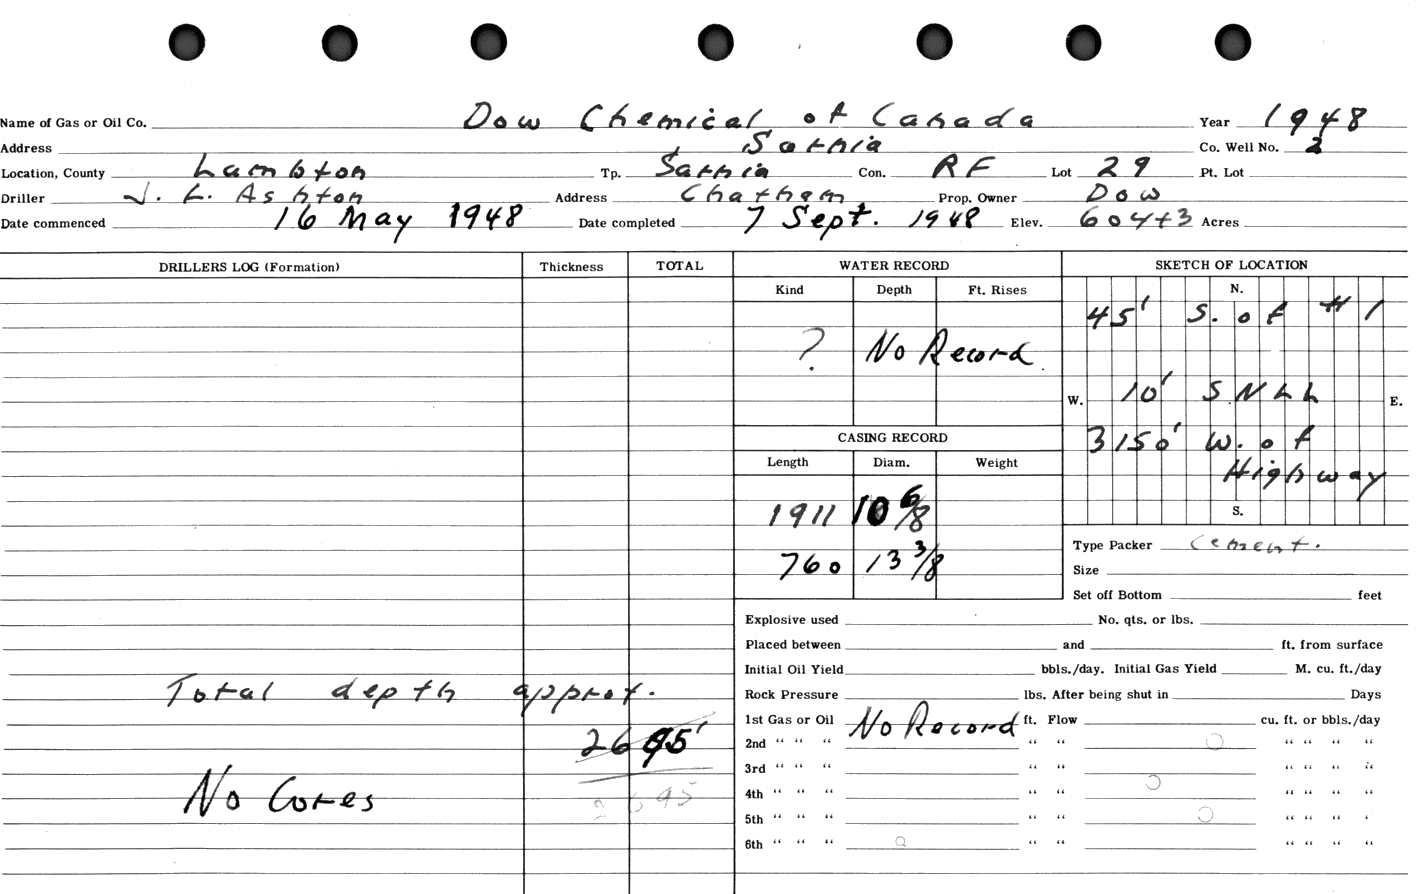 Name of Gas or Oil Co. Dow Chemical of Canada Year 1948
Address Sarnia Co. Well No. 2
Location, County Lambton Tp. Sarnia Con. RF Lot 29 Pt. Lot
Driller J. L. Ashton Address Chatham Prop. Owner Dow
Date commenced 16 May 1948 Date completed 7 Sept. 1948 Elev. 604+3 Acres
DRILLERS LOG (Formation) Thickness TOTAL WATER RECORD SKETCH OF LOCATION
Kind Depth Ft. Rises N.
45' S. of #1
? No Record
W. 10' S.NLL E.
CASING RECORD 3150' W. of
Length Diam. Weight Highway
1911 10 6/8 S.
Type Packer Cement.
760 13 3/8
Size
Set off Bottom feet
Explosive used No. qts. or lbs.
Placed between and ft. from surface
Initial Oil Yield bbls./day. Initial Gas Yield M. cu. ft./day
Total depth approx. Rock Pressure lbs. After being shut in Days
1st Gas or Oil No Record ft. Flow cu. ft. or bbls./day
2695' 2nd " " " " " " " " "
3rd " " " " " " " " "
No Cores 2695 4th " " " " " " " " "
5th " " " " " " " " '
6th " " " " " " " " "